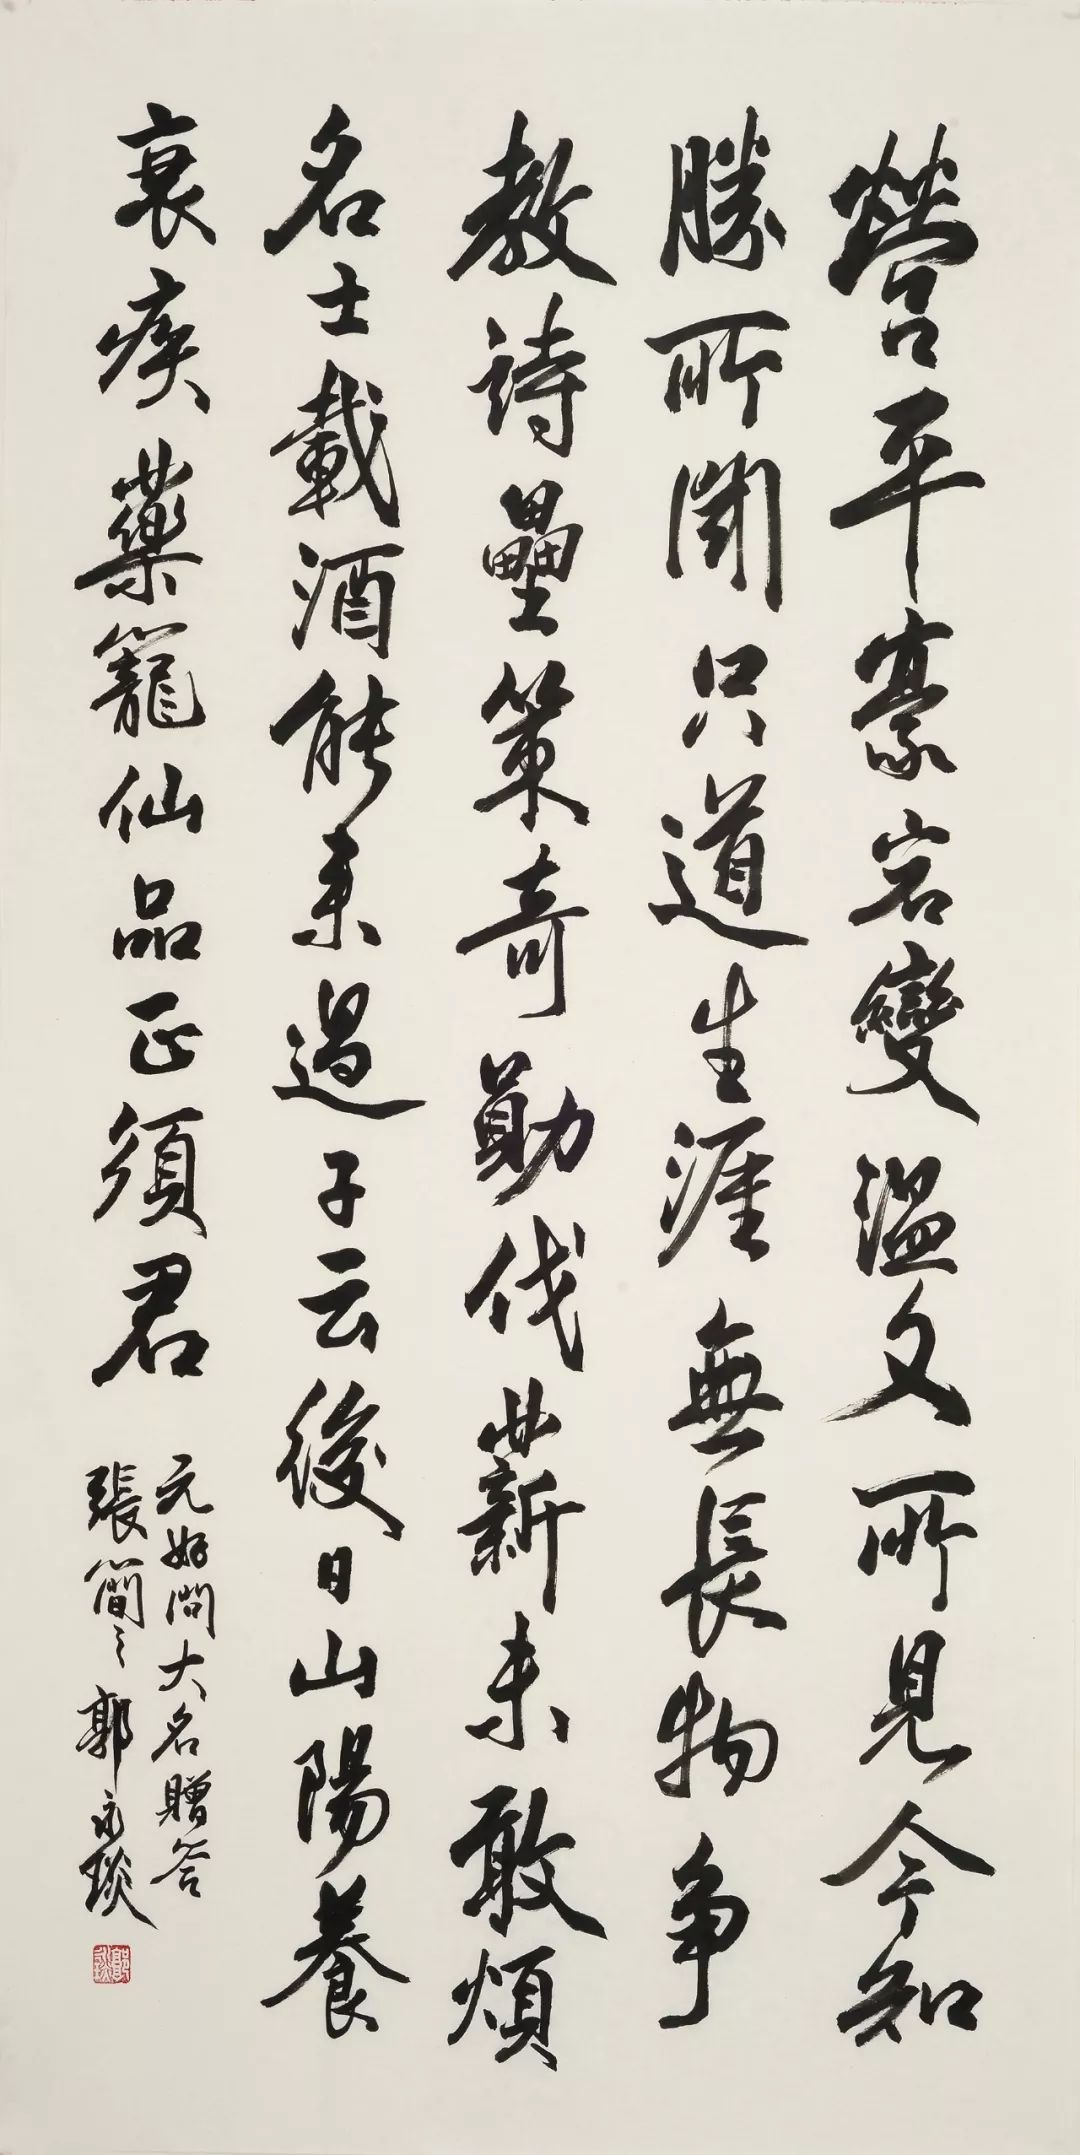 營平豪宕變温文所見今知
勝所聞只道生涯無長物争
教詩壘策奇勳伐薪未敢煩
名士載酒能来過子云後日山陽養
衰疾藥籠仙品正須君
元好問大名贈答
張簡之郭永琰